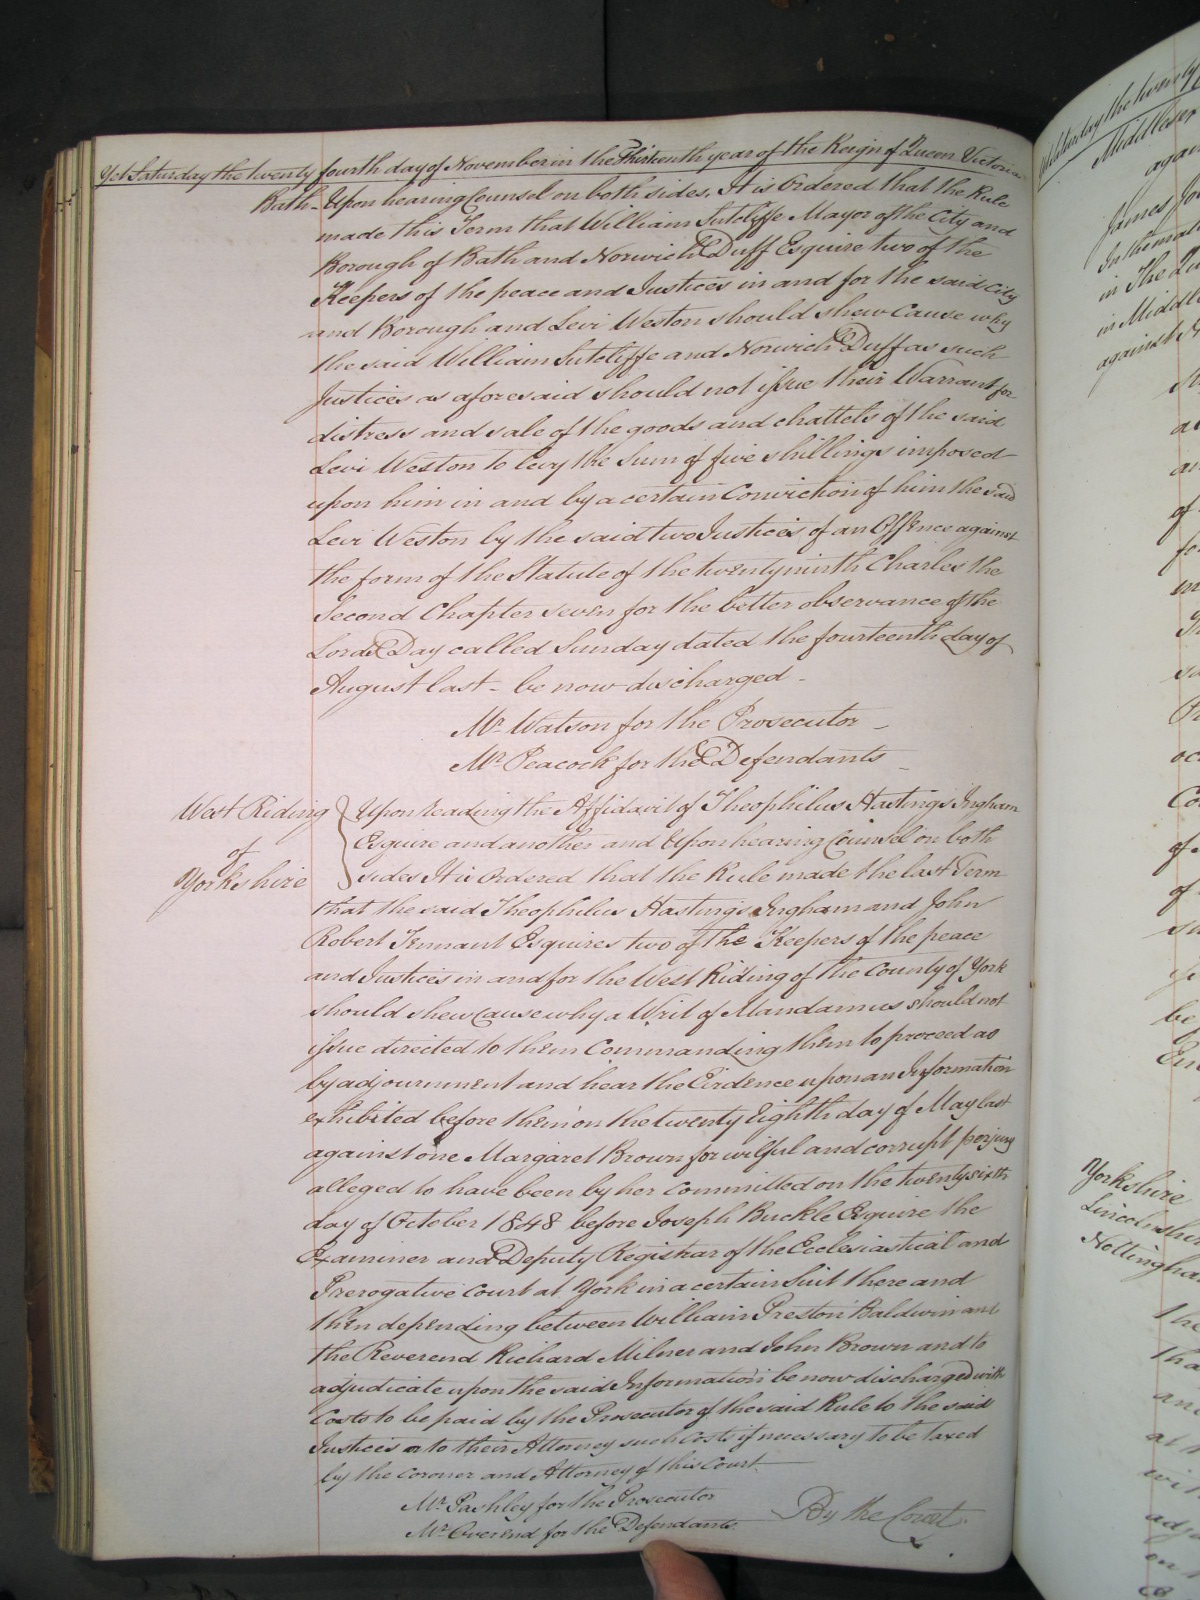 Yet Saturday the twenty fourth day of November in the Thirteenth year of the Reign of Queen Victoria
Bath - Upon hearing Counsel on both sides. It is Ordered that the Rule
made this Term that William Sutcliffe Mayor of the City and
Borough of Bath and Norwich Duff Esquire two of the
Keepers of the peace and Justices in and for the said City
and Borough and Levi Weston should shew Cause why
the said William Sutcliffe and Norwich Duff as such
Justices as aforesaid should not issue their Warrant for
distress and sale of the goods and chattels of the said
Levi Weston to levy the Sum of five shillings imposed
upon him in and by a certain Conviction of him the said
Levi Weston by the said two Justices of an Offence against
the form of the Statute of the twenty ninth Charles the
Second Chapter seven for the better observance of the
Lords Day called Sunday dated the fourteenth day of
August last - be now discharged -
Mr. Watson for the Prosecutor -
Mr. Peacock for the Defendants -
West Riding of Yorkshire
Upon reading the Affidavit of Theophilus Hastings Ingham
Esquire and another and Upon hearing Counsel on both
sides It is Ordered that the Rule made the last Term
that the said Theophilus Hastings Ingham and John
Robert Tennant Esquires two of the Keepers of the peace
and Justices in and for the West Riding of the County of York
should shew Cause why a Writ of Mandamus should not
issue directed to them Commanding them to proceed as
by adjournment and hear the Evidence upon an Information
exhibited before them on the twenty Eighth day of May last
against one Margaret Brown for wilful and corrupt perjury
alleged to have been by her Committed on the twenty sixth
day of October 1848 before Joseph Buckle Esquire the
Examiner and Deputy Registrar of the Ecclesiastical and
Prerogative Court at York in a certain Suit there and
then depending between William Preston Baldwin and
the Reverend Richard Milner and John Brown and to
adjudicate upon the said Information be now discharged with
Costs to be paid by the Prosecutor of the said Rule to the said
Justices or to their Attorney such Costs if necessary to be taxed
by the Coroner and Attorney of this Court
Mr. Pashley for the Prosecutor
Mr. Overend for the Defendants
By the Court
Middlesex
Yorkshire